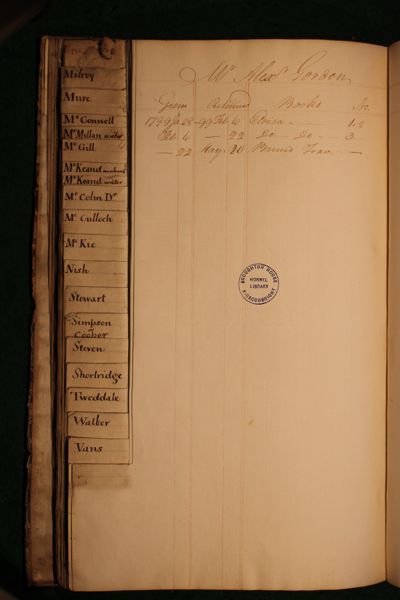 Milroy
Mure
McConnell
McMillan writer
McGill
McKeand merchant
McKeand writer
Mc Colm Dr
Mc Culloch
Mc Kie
Nish
Stewart
Simpson
Cooper
Steven
Shortridge
Tweddale
Walker
Vans
Mr Alexr Gordon
From Returned Books No.
1799 28 99 Feb 6 Eloisa 1.2
Feb 6 — 22 Do — Do — 3
— 22 20
BROUGHTON HOUSE
HORNEL
LIBRARY
KIRKCUDBRIGHT